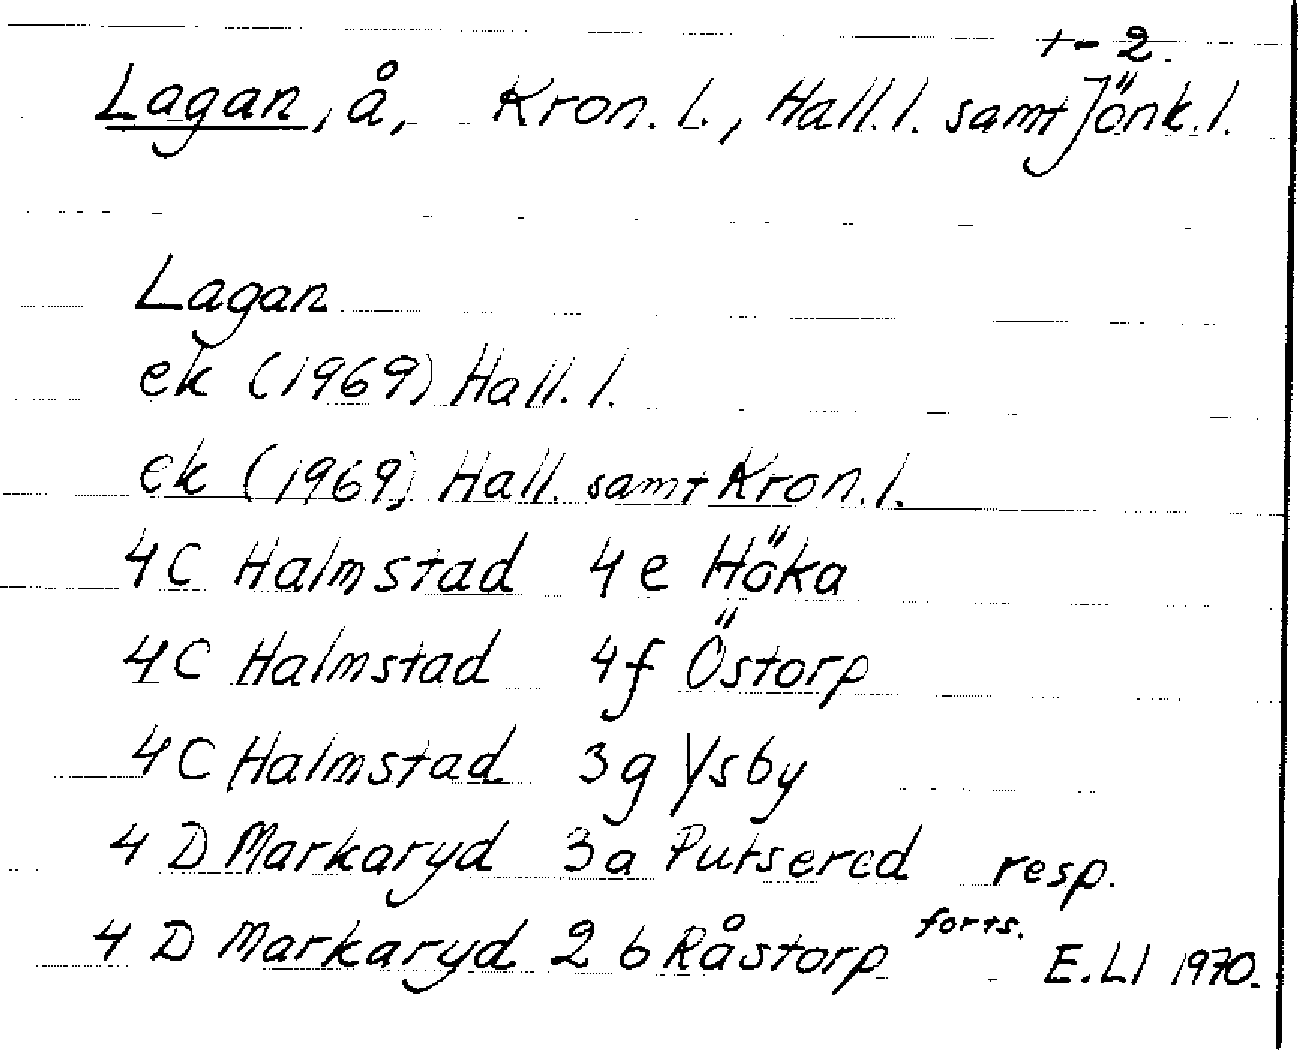 +-2.
Lagan, å, Kron. l., Hall. l. samt Jönk. l.
Lagan
ek (1969) Hall. l.
ek (1969) Hall. samt Kron. l.
4 C Halmstad 4 e Höka
4 C Halmstad 4 f Östorp
4 C Halmstad 3 g Ysby
4 D Markaryd 3 a Putsered resp.
4 D Markaryd 2 b Råstorp forts.
E. Ll 1970.